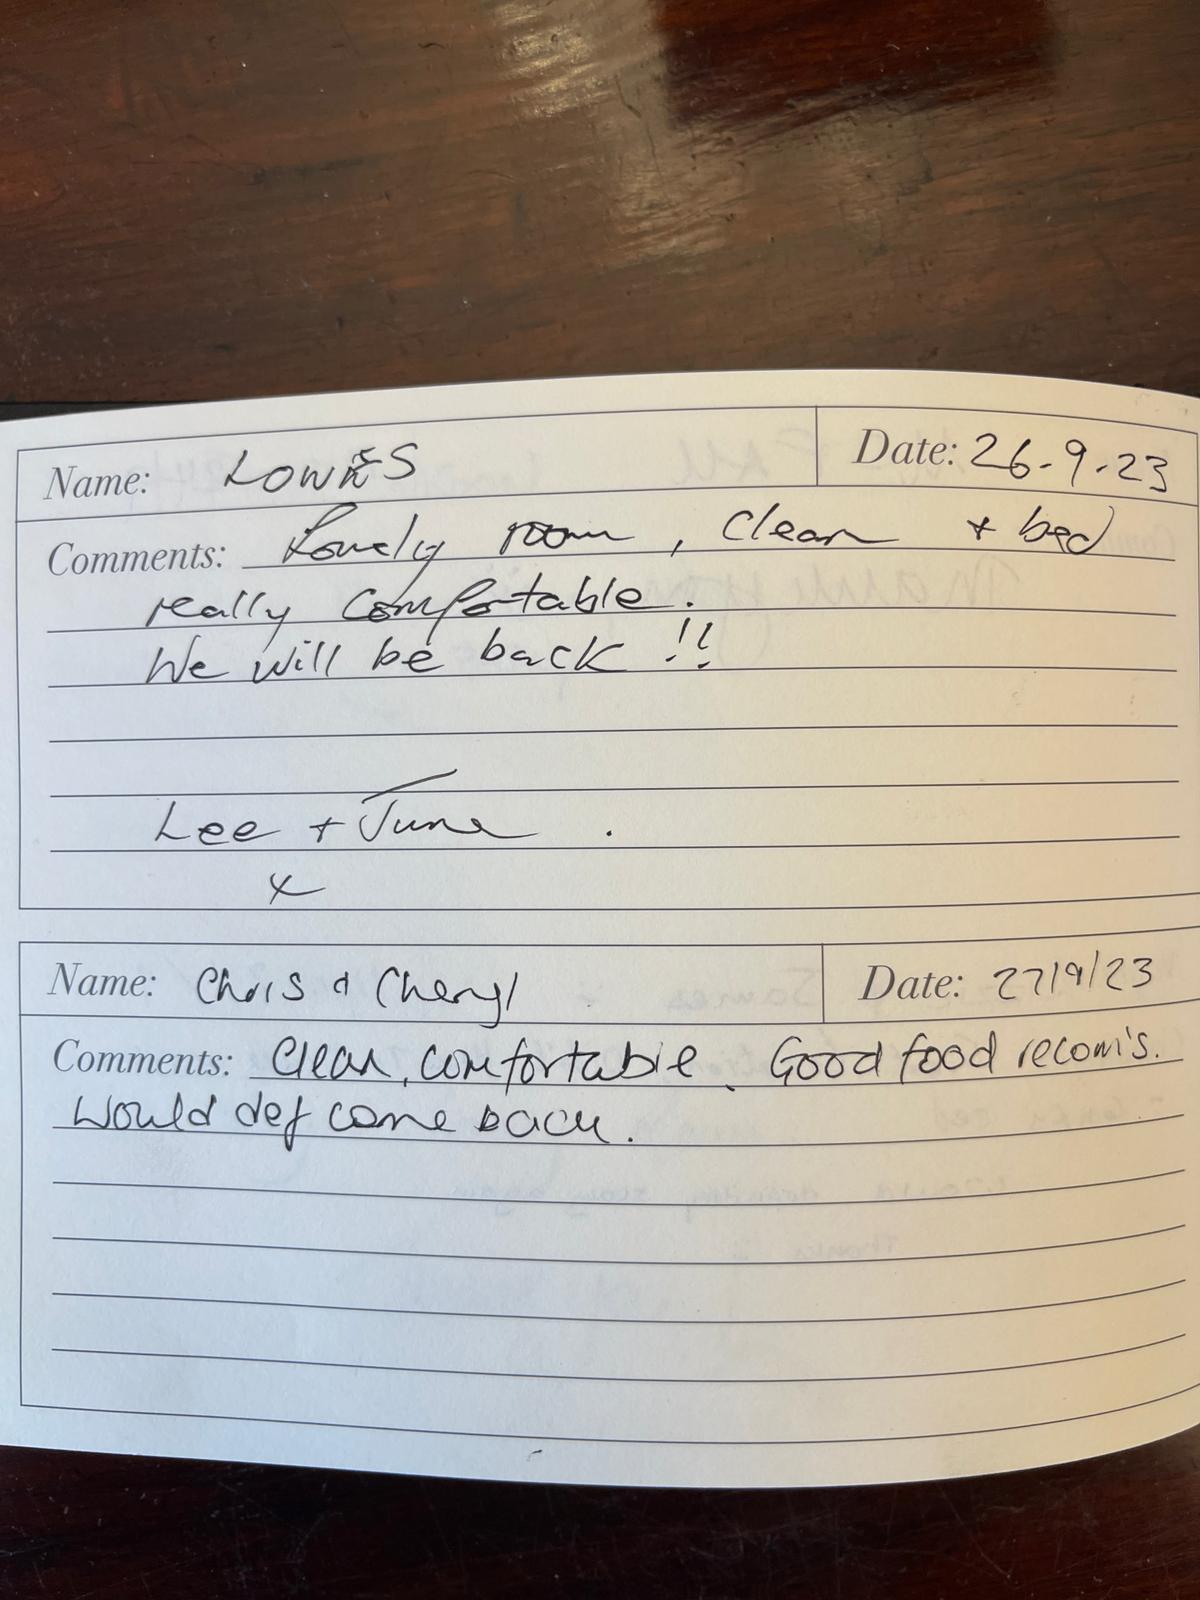 Name: LOWNES
Date: 26-9-23
Comments: Lovely room, Clean + bed
really Comfortable.
We will be back !!
Lee + June .
x
Name: Chris & Cheryl
Date: 27/9/23
Comments: Clean, comfortable. Good food recom's.
Would def come back.